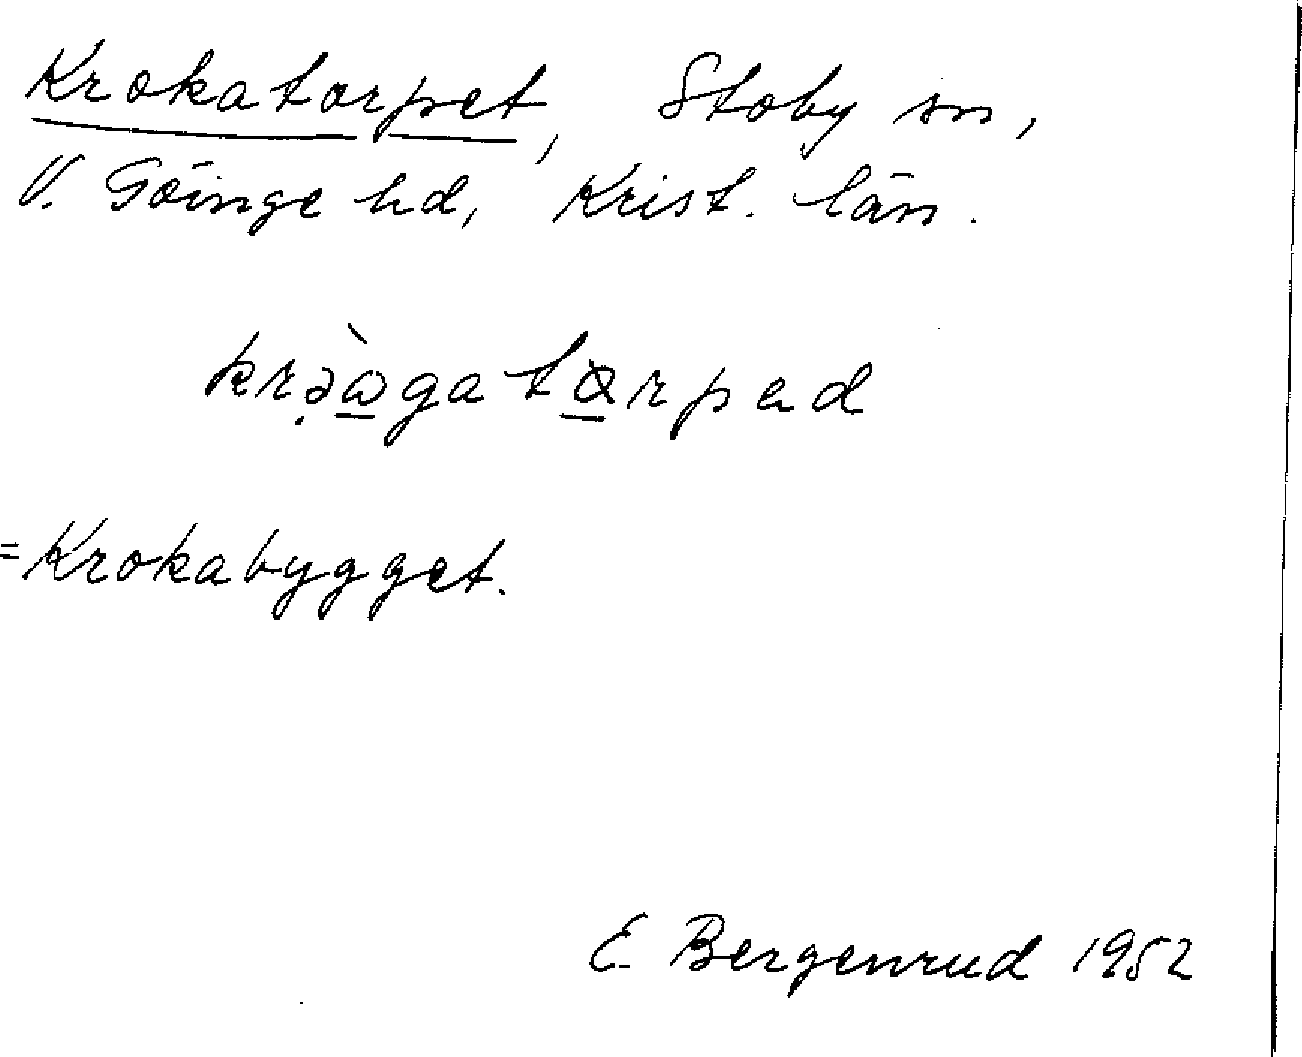 Krokatorpet, Stoby sn,
V. Göinge hd, Krist. län.
krə̣ὼ̲gatα̲rpəd
=Krokabygget.
E. Bergenrud 1952